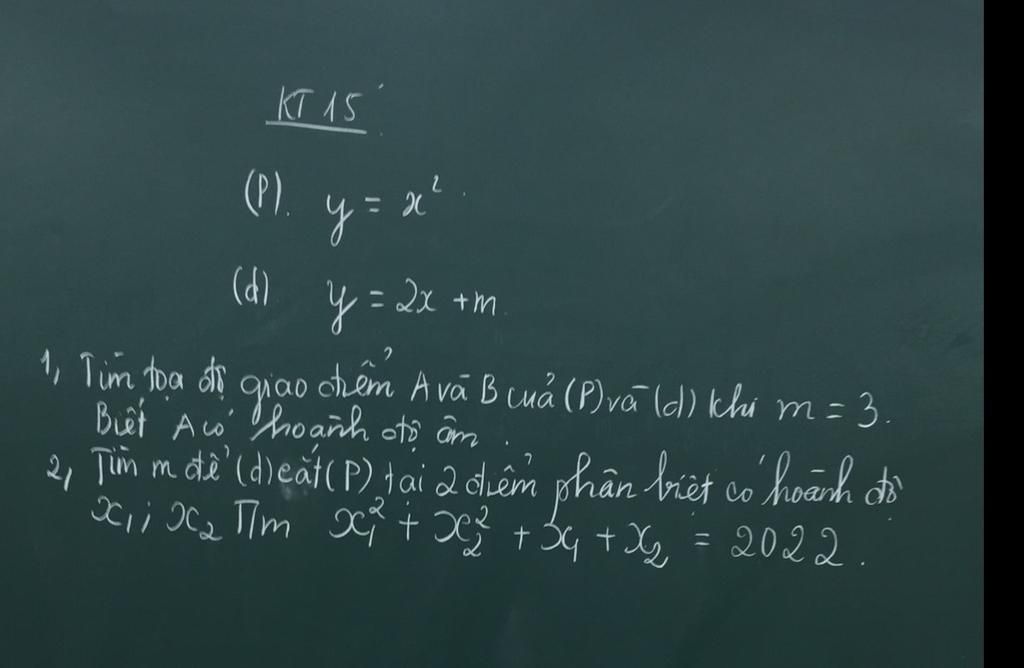 KT 15'
(P). y = x².
(d) y = 2x + m.
1, Tìm tọa độ giao điểm A và B của (P) và (d) khi m = 3.
Biết A có hoành độ âm.
2, Tìm m để (d) cắt (P) tại 2 điểm phân biệt có hoành độ
x₁; x₂ Tìm x₁² + x₂² + x₁ + x₂ = 2022.